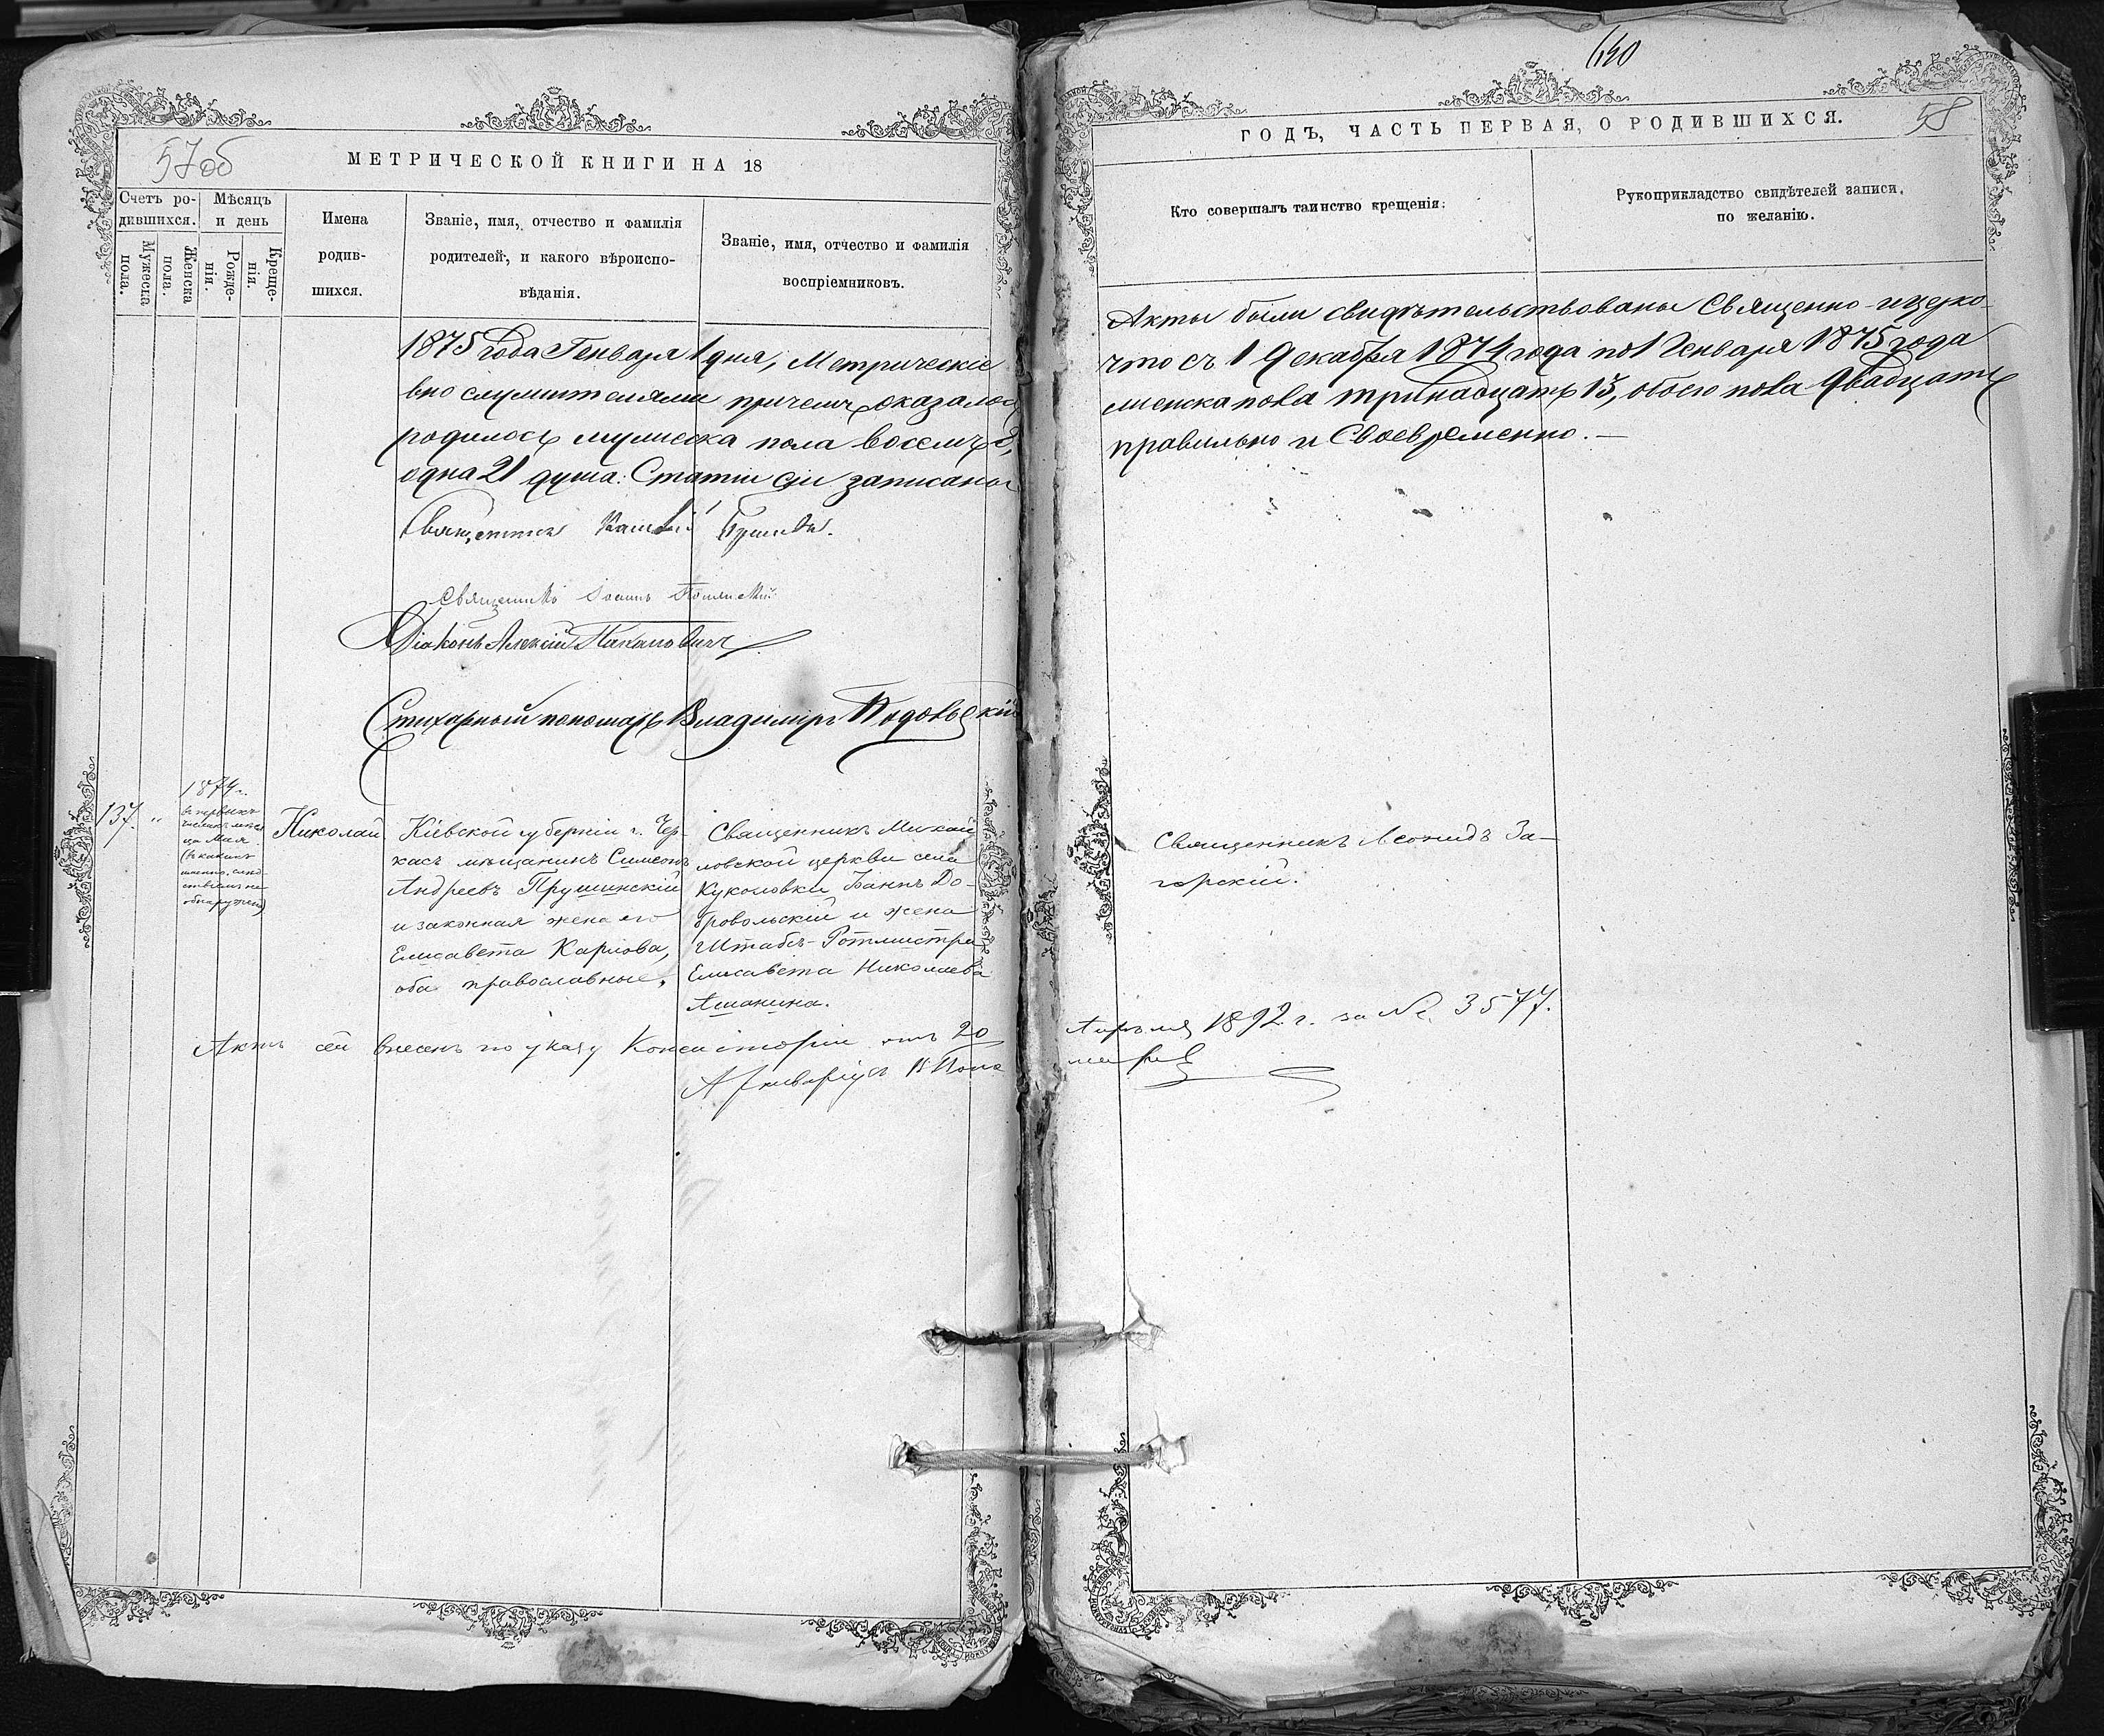 57об
МЕТРИЧЕСКОЙ КНИГИ НА 18
Счетъ родившихся.
Мужеска пола.
Женска пола.
Мѣсяцъ и день
Рожденія.
Крещенія.
Имена
родив-
шихся.
Званіе, имя, отчество и фамилія
родителей, и какого вѣроиспо-
вѣданія.
Званіе, имя, отчество и фамилія
воспріемниковъ.
1875 года Генваря 1 дня, Метрическіе
вно служителями причемъ оказалось
родилось мужеска пола восемь 8,
одна 21 душа. Статіи сіи записаны
Священникъ
Священникъ Іоаннъ
Діаконъ Алексій
Стихарный пономарь Владиміръ Подольскій
1874 г.
въ первыхъ
числахъ мѣся
ца Мая
(въ какихъ
именно, слѣд-
ствіемъ не
обнаружено)
137. "
Николай
Кіевской губерніи г. Чер-
касъ мѣщанинъ Симеонъ
Андреевъ Прушинскій
и законная жена его
Елисавета Карлова,
оба православные.
Священникъ Михай
ловской церкви села
Куколовки Іоаннъ До-
бровольскій и жена
Штабсъ-Ротмистра
Елисавета Николаева
Ашанина.
Актъ сей внесенъ по указу Консисторіи отъ 20
Архиваріусъ
640
ГОДЪ, ЧАСТЬ ПЕРВАЯ, О РОДИВШИХСЯ.
58
Кто совершалъ таинство крещенія:
Рукоприкладство свидѣтелей записи,
по желанію.
Акты были свидѣтельствованы Священно-и церко-
что съ 1 Декабря 1874 года по 1 Генваря 1875 года
женска пола тринадцать 13, обоего пола двадцать
правильно и Своевременно.—
Священникъ Леонидъ За-
горскій.
Апрѣля 1892 г. за № 3577.